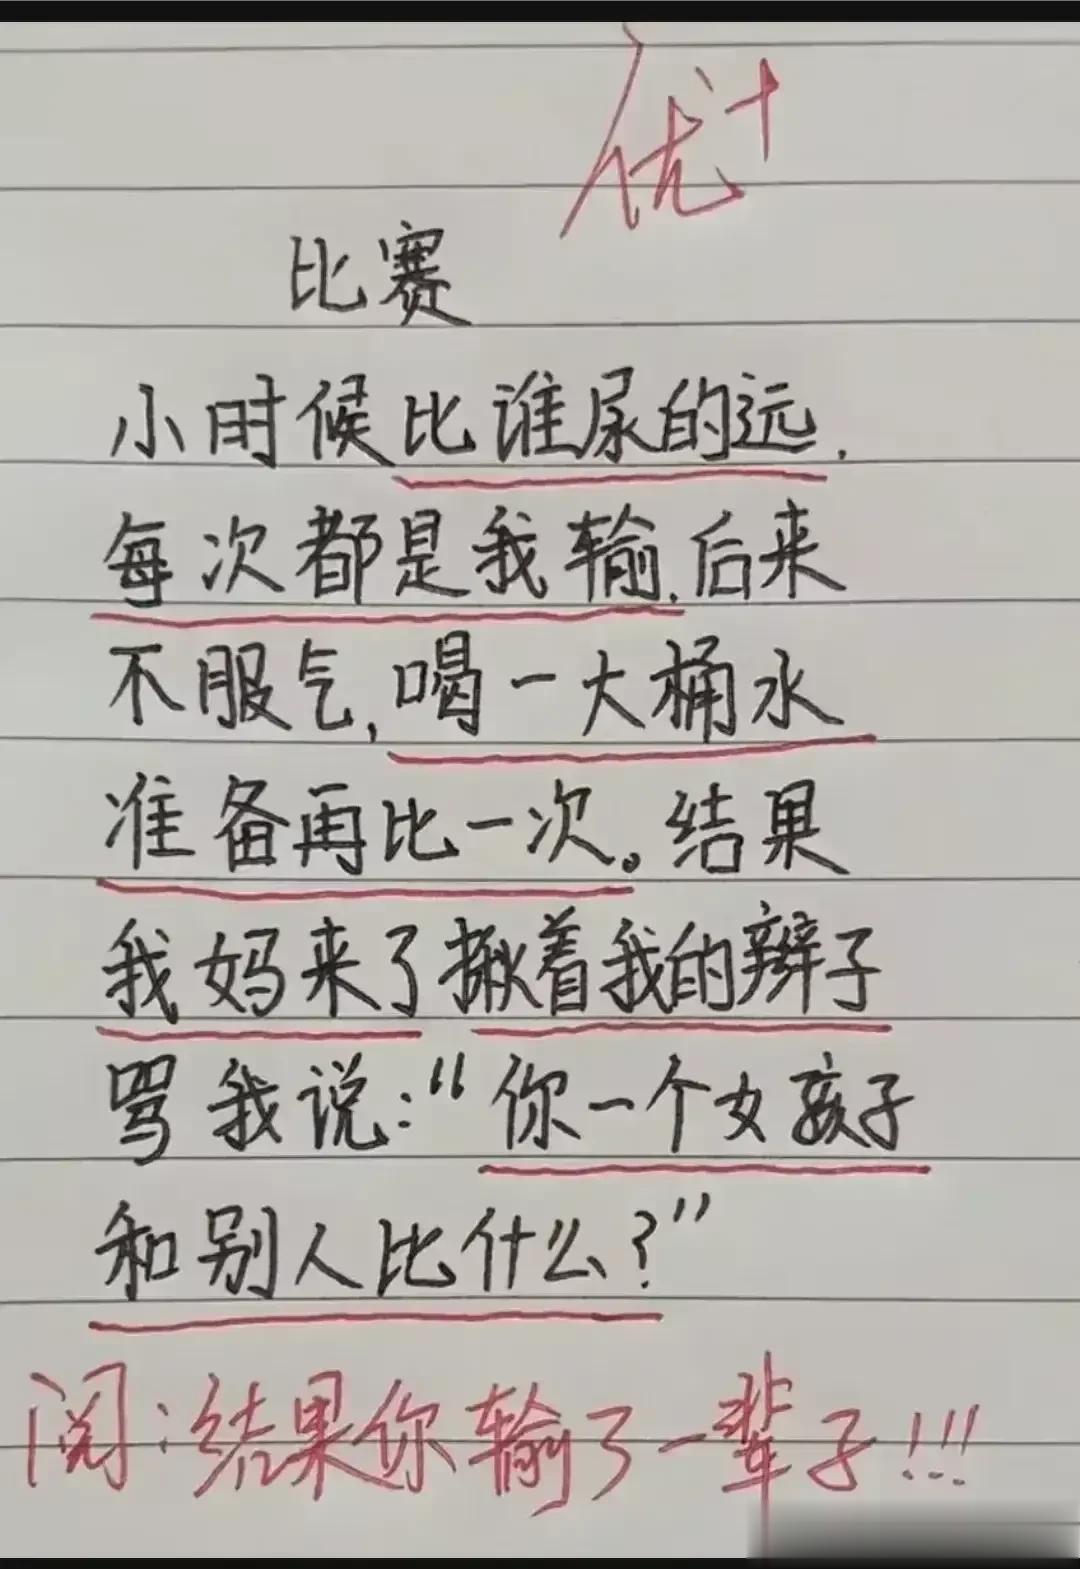 优+
比赛
小时候比谁尿的远.
每次都是我输.后来
不服气,喝一大桶水
准备再比一次。结果
我妈来了揪着我的辫子
骂我说:“你一个女孩子
和别人比什么?”
阅:结果你输了一辈子!!!